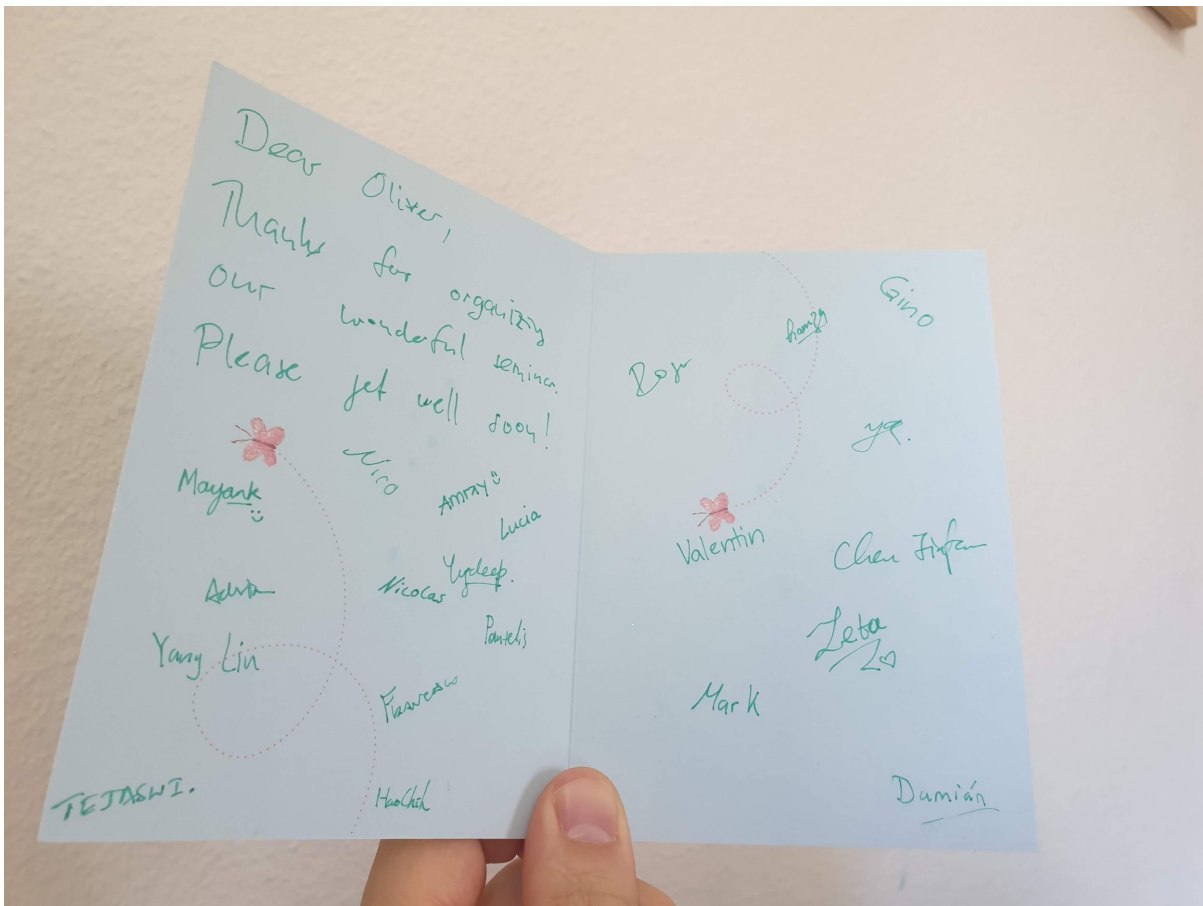 Dear Oliver,
Thanks for organizing
our wonderful seminar.
Please get well soon!
Nico
Mayank
Amray
Lucia
Nicolas
Pantelis
Yang Lin
Francesco
TEJASWI.
HaoChih
Gino
hamza
ya.
Valentin
Chen
Zeta
Mark
Damián